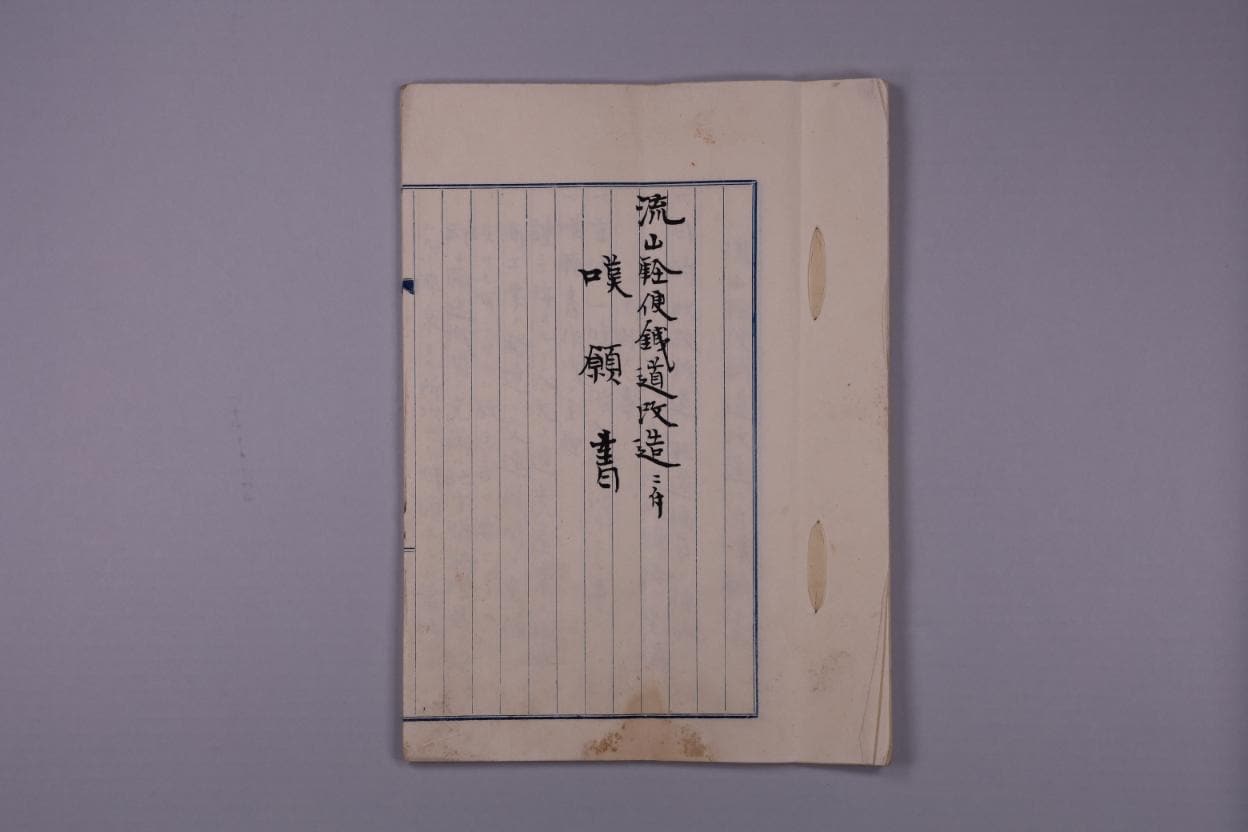 流山軽便鉄道改造ニ付
嘆願書